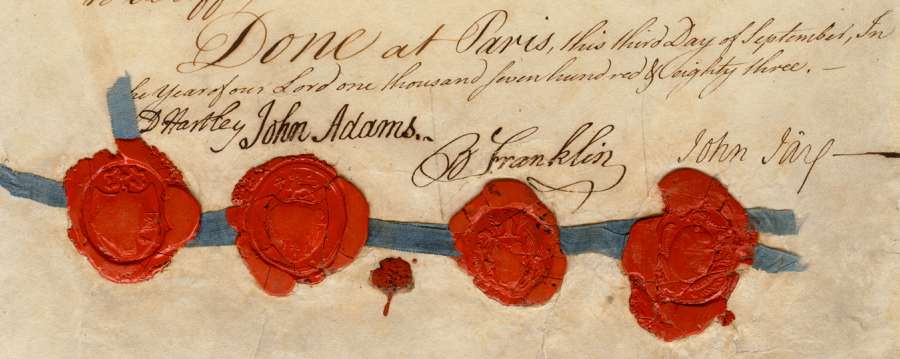 Done at Paris, this third Day of September, In
he Year of our Lord one thousand seven hundred & eighty three. —
D Hartley John Adams. B Franklin John Jay —